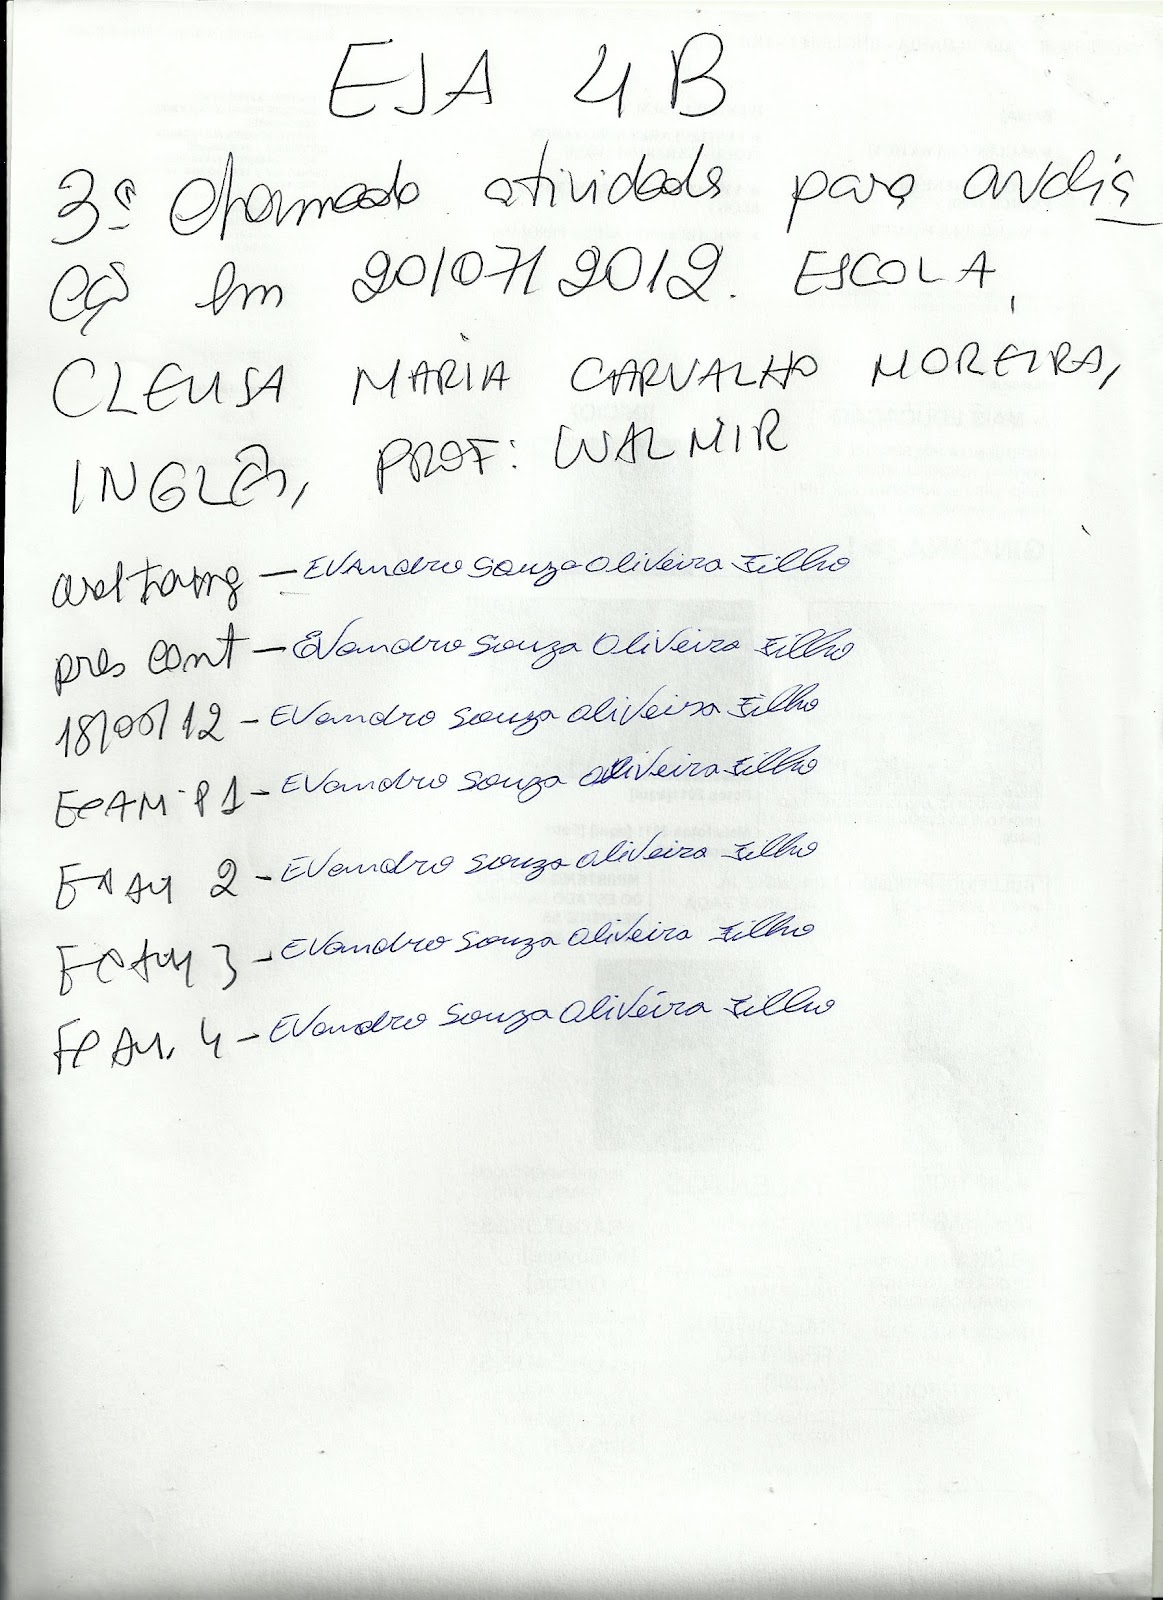 EJA 4B
3ª chamada atividade para avalia
ção em 20/07/2012. ESCOLA,
CLEUSA MARIA CARVALHO MOREIRA,
INGLÊS, PROF: WALMIR
- Evandro Souza Oliveira Filho
pres cont - Evandro Souza Oliveira Filho
- Evandro Souza Oliveira Filho
EXAM P1 - Evandro Souza Oliveira Filho
EXAM 2 - Evandro Souza Oliveira Filho
EXAM 3 - Evandro Souza Oliveira Filho
EXAM. 4 - Evandro Souza Oliveira Filho